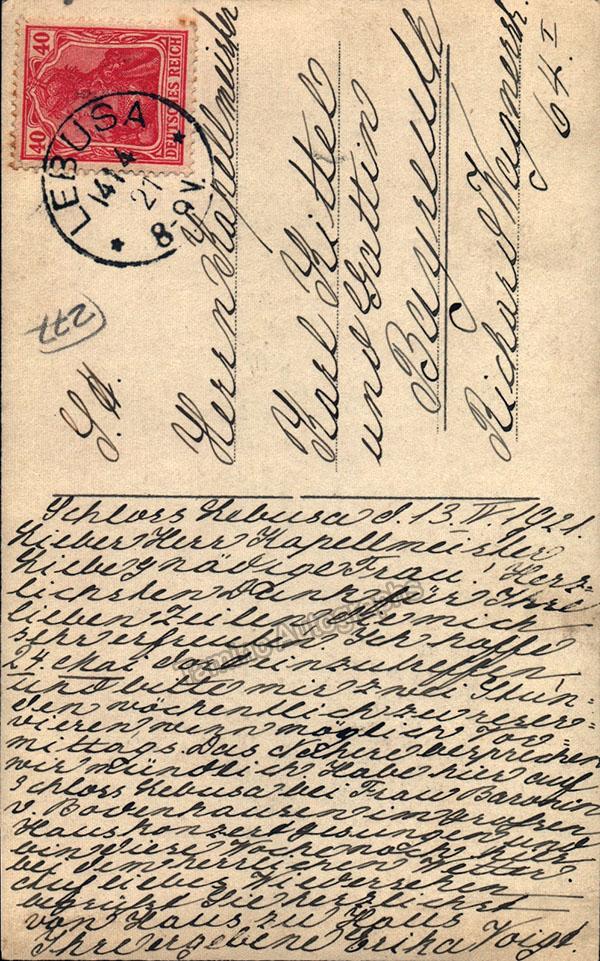 40
40
DEUTSCHES REICH
LEBUSA
14.4
21
8-9V.
277
S. H.
Herrn Kapellmeister
Karl Kittel
und Gattin
Bayreuth
Richard Wagnerstr.
64 I
Schloss Lebusa d. 13. IV. 1921.
Lieber Herr Kapellmeister
Liebe gnädige Frau! Herz-
lichsten Dank für Ihre
lieben Zeilen die mich
sehr erfreuten. Ich hoffe
24. Mai dort einzutreffen
und bitte mir zwei Stun-
den wöchentlich zu reser-
vieren, wenn möglich Vor-
mittags. Das Nähere besprechen
wir mündlich. Habe hier auf
Schloss Lebusa bei Frau Baronin
v. Bodenhausen im großen
Hauskonzert gesungen und
bin diese Woche noch hier
bei dem herrlichen Wetter.
Auf liebes Wiedersehen
begrüßt Sie herzlichst
von Haus zu Haus
Ihre ergebene Erika Voigt.
Tamino Autographs